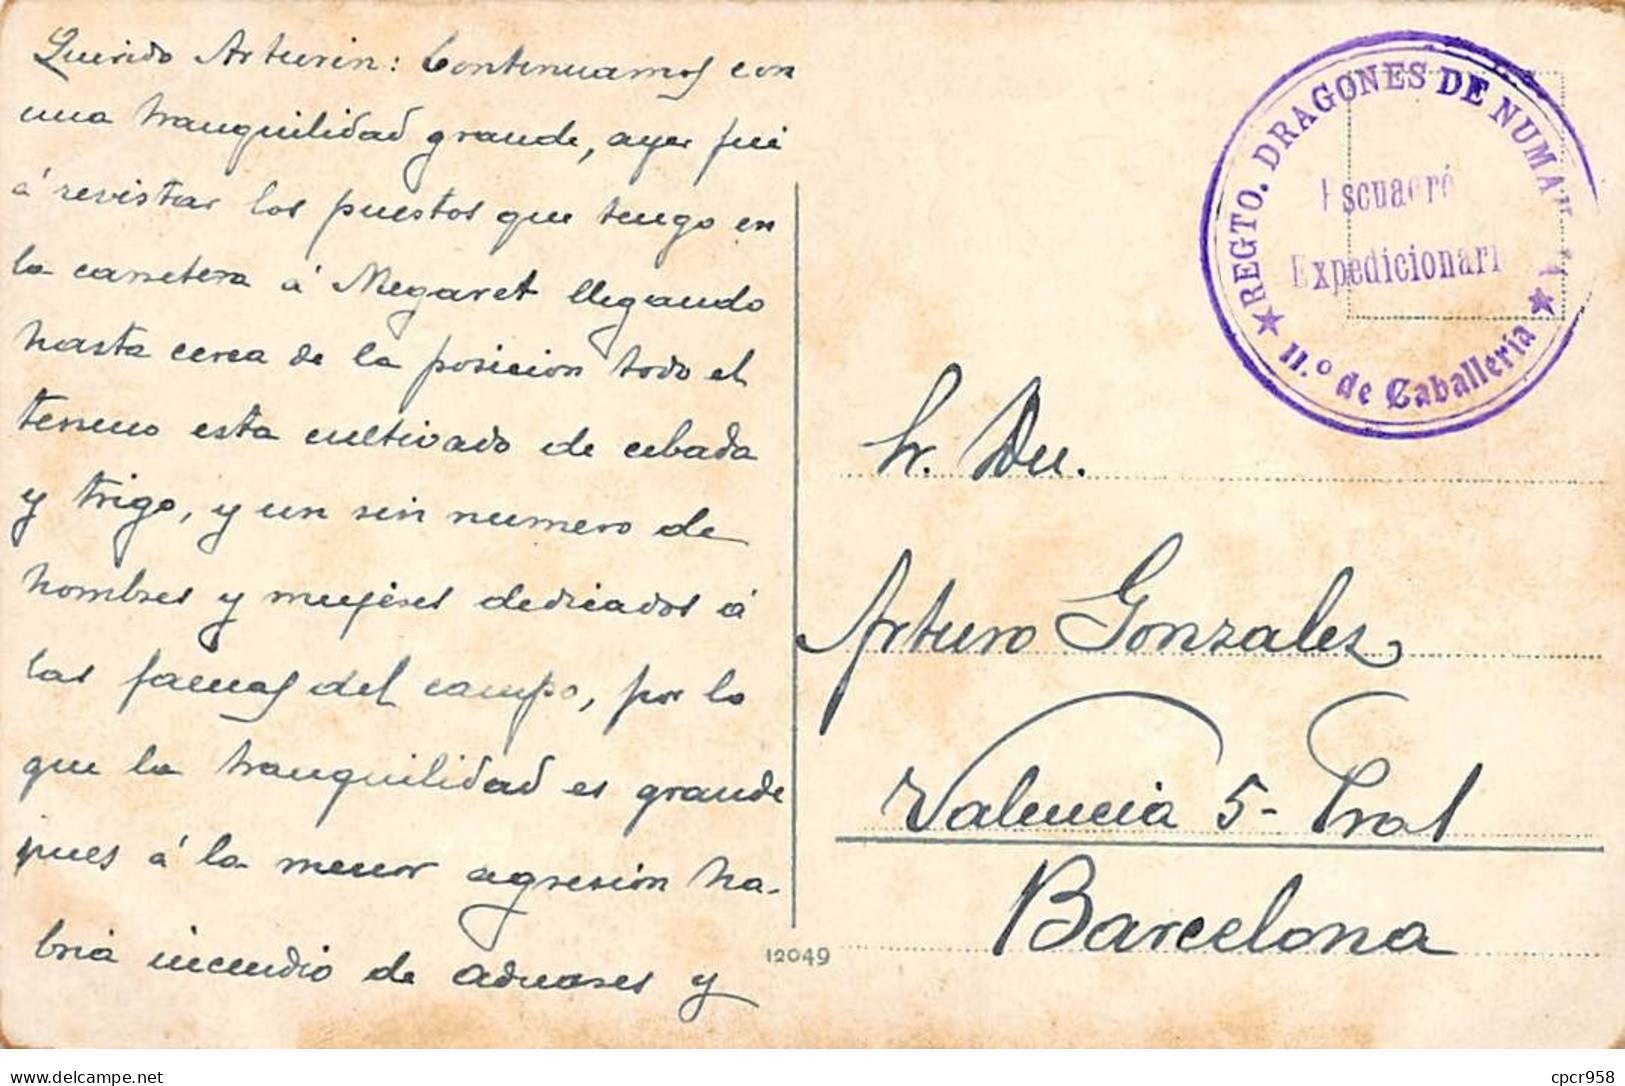 Querido Arturin: Continuamos con
una tranquilidad grande, ayer fui
á revistar los puestos que tengo en
la carretera á Megaret llegando
hasta cerca de la posicion todo el
terreno esta cultivado de cebada
y trigo, y un sin numero de
hombres y mujeres dedicados á
las faenas del campo, por lo
que la tranquilidad es grande
pues á la menor agresión ha-
bria incendio de aduares y
REGTO. DRAGONES DE NUMAN
Escuadró
Expedicionari
11.º de Caballería
Sr. Dn.
Arturo Gonzales
Valencia 5- Pral
Barcelona
12049
delcampe.net
cpcr958